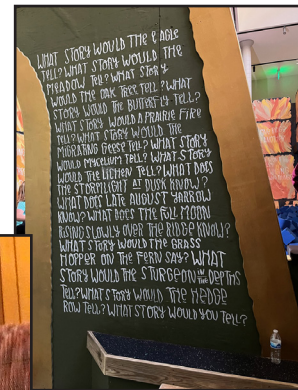 WHAT STORY WOULD THE EAGLE
TELL? WHAT STORY WOULD THE
MEADOW TELL? WHAT STORY
WOULD THE OAK TREE TELL? WHAT
STORY WOULD THE BUTTERFLY TELL?
WHAT STORY WOULD A PRAIRIE FIRE
TELL? WHAT STORY WOULD THE
MIGRATING GEESE TELL? WHAT STORY
WOULD MYCELIUM TELL? WHAT STORY
WOULD THE LICHEN TELL? WHAT DOES
THE STORMLIGHT AT DUSK KNOW?
WHAT DOES LATE AUGUST YARROW
KNOW? WHAT DOES THE FULL MOON
RISING SLOWLY OVER THE RIDGE KNOW?
WHAT STORY WOULD THE GRASS
HOPPER ON THE FERN SAY? WHAT
STORY WOULD THE STURGEON IN THE DEPTHS
TELL? WHAT STORY WOULD THE HEDGE
ROW TELL? WHAT STORY WOULD YOU TELL?